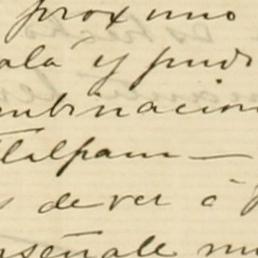 proximo
ala y pudi
mbinacion
Tlalpam —
s de ver á
enséñale mi